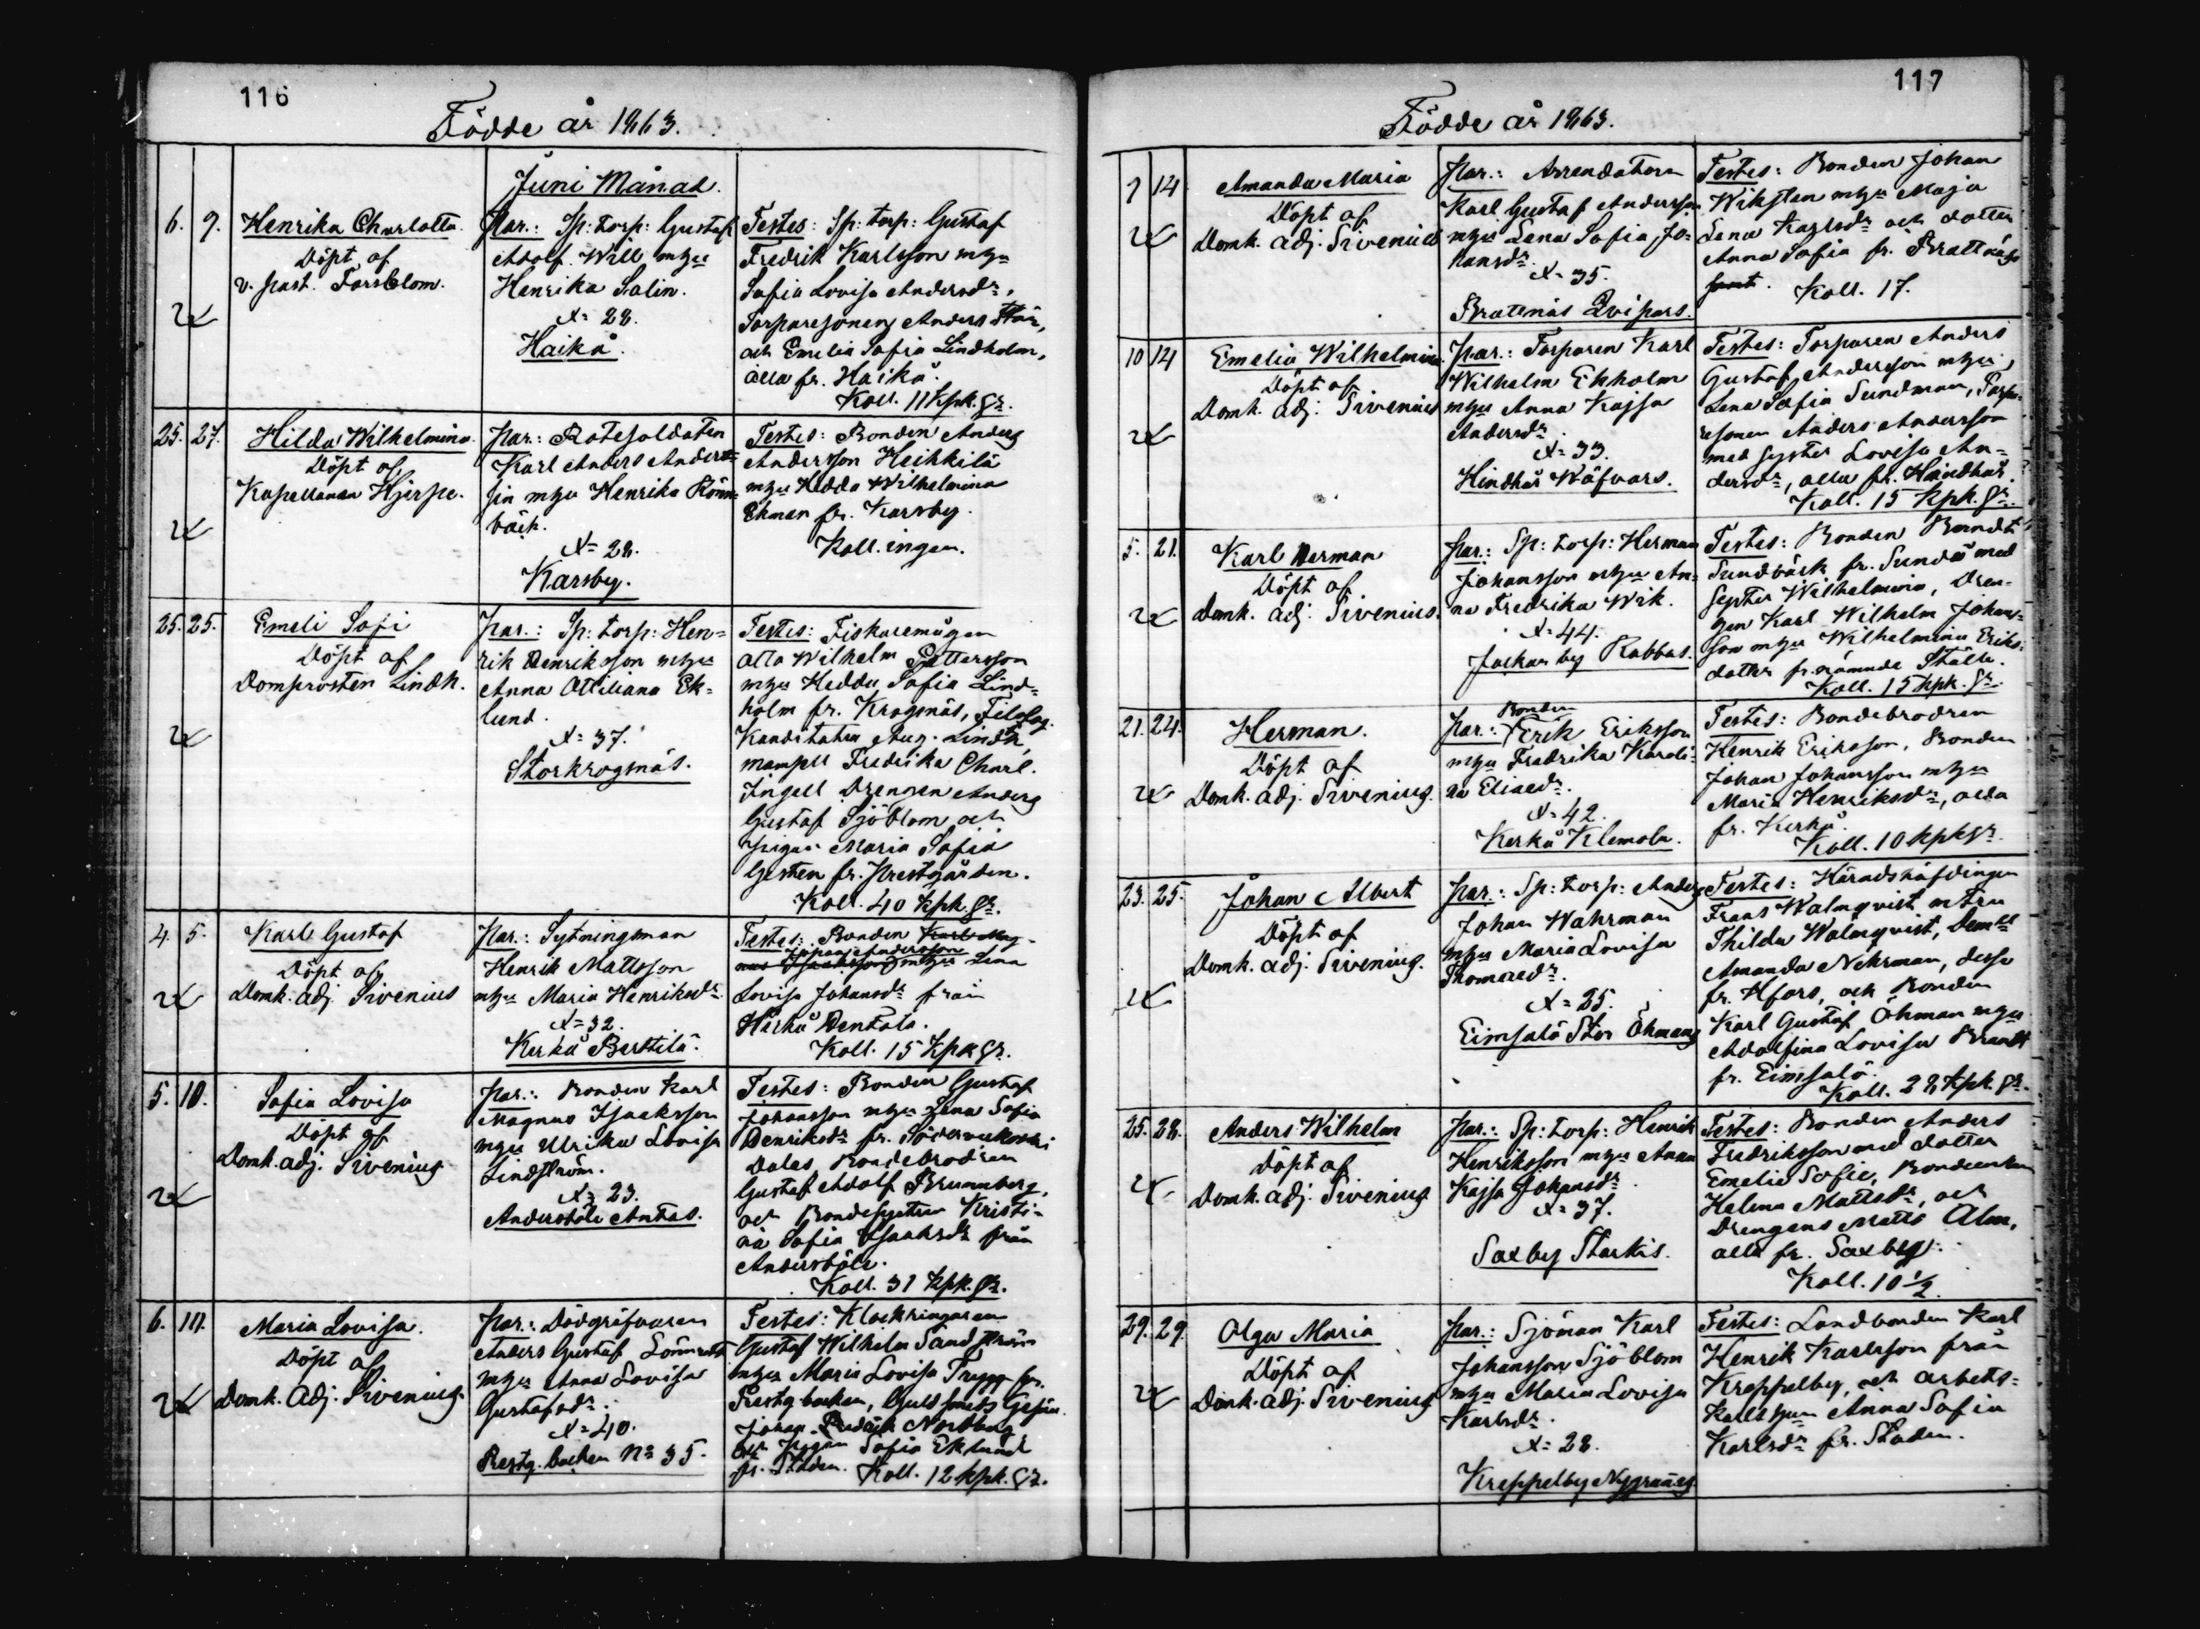 116
Födde år 1863.
Juni Månad.
6. 9. Henrika Charlotta
Döpt af
v. past. Forsblom.
Par.: Sp: torp: Gustaf
Adolf Will mhu
Henrika Salin.
28.
Haikå.
Testes: Sp: torp: Gustaf
Fredrik Karlsson mhu
Sofia Lovisa Andersdr,
Torparesonen Anders
och Emelia Sofia Lindholm,
alla fr. Haikå.
Koll. 11 kpk. Sr.
25. 27. Hilda Wilhelmina
Döpt af
Kapellanen Hjerpe.
Par.: Rotesoldaten
Karl Anders Anders-
sin mhu Henrika Rönn-
bäck.
28.
Karsby.
Testes: Bonden Anders
Andersson Heikkilä
mhu Hedda Wilhelmina
Ekman fr. Karsby.
Koll. ingen.
25. 25. Emeli Sofi
Döpt af
Domprosten Lindh.
Par.: Sp: torp: Hen-
rik Henriksson mhu
Anna Ottiliana Ek-
lund.
37.
Storkrogsnäs.
Testes: Fiskaremågen
Otto Wilhelm Pettersson
mhu Hedda Sofia Lind-
holm fr. Krogsnäs, Filosof.
Kandidaten Aug. Lindh,
mamsell Fredrika Charl.
Ingell Drengen Anders
Gustaf Sjöblom och
pigan Maria Sofia
Gestén fr. Prestgården.
Koll. 40 kpk. Sr.
4. 5. Karl Gustaf
Döpt af
Domk. adj. Sirenius
Par.: Sytningsman
Henrik Mattsson
mhu Maria Henriksdr
32.
Kerkå Berttilä.
Testes: Bonden Karl Mag-
Johan Andersson
nus Isaaksson mhu Lena
Lovisa Johansdr från
Kerkå Pentola.
Koll. 15 kpk Sr.
5. 10. Sofia Lovisa
Döpt af
Domk. adj. Sirenius
Par.: Bonden Karl
Magnus Isaaksson
mhu Ulrika Lovisa
Lindström.
23.
Andersböle Antas.
Testes: Bonden Gustaf
Johansson mhu Lena Sofia
Henriksdr fr. Södervekoski
Dalas Bondebrodren
Gustaf Adolf Brunnberg,
och Bondesystern Kristi-
na Sofia Isaaksdr från
Andersböle.
Koll. 31 kpk. Sr.
6. 10. Maria Lovisa.
Döpt af
Domk. Adj. Sirenius
Par.: Dödgräfvaren
Anders Gustaf Lönnroth
mhu Anna Lovisa
Gustafsdr.
40.
Prestg. backen No 35.
Testes: Klockringaren
Gustaf Wilhelm Sandström
mhu Maria Lovisa Trygg fr.
Prestg. backen, Guldsmeds Gesän
Johan Fredrik Nordberg
och pigan Sofia Eklund
fr. Staden. Koll. 12 kpk. Sr.
117
Födde år 1863.
7 14 Amanda Maria
Döpt af
Domk. Adj. Sirenius
Par.: Arrendatorn
Karl Gustaf Andersson
mhu Lena Sofia Jo-
hansdr.
35.
Brattnäs Qvipars.
Testes: Bonden Johan
Wiksten mhu Maja
Lena Karlsdr och dotter
Anna Sofia fr. Brattnäs
Koll. 17.
10 14 Emelia Wilhelmina
Döpt af
Domk. Adj. Sirenius
Par.: Torparen Karl
Wilhelm Ekholm
mhu Anna Kajsa
Andersdr.
33.
Hindhår Wäfvars.
Testes: Torparen Anders
Gustaf Andersson mhu,
Lena Sofia Sundman, Torpa-
resonen Anders Andersson
med syster Lovisa An-
dersdr, alla fr. Hindhår.
Koll. 15 kpk. Sr.
5. 21. Karl Herman
Döpt af
Domk. adj. Sirenius.
Par.: Sp: torp: Herman
Johansson mhu An-
na Fredrika Wik.
44.
Jackarby Rabbas.
Testes: Bonden Berndt
Sundbäck fr. Sundö med
syster Wilhelmina, Dren-
gen Karl Wilhelm Johans-
son mhu Wilhelmina Eriks-
dotter fr. nämnde Ställe.
Koll. 15 kpk. Sr.
21. 24. Herman.
Döpt af
Domk. adj. Sirenius.
Bonden
Par.: Erik Eriksson
mhu Fredrika Karoli-
na Eliaedr.
42.
Kerkå Klemola.
Testes: Bondebrodren
Henrik Eriksson, Bonden
Johan Johansson mhu
Maria Henriksdr, alla
fr. Kerkå.
Koll. 10 kpk Sr.
23. 25. Johan Albert
Döpt af
Domk. adj. Sirenius.
Par.: Sp: torp: Anders
Johan Wahrman
mhu Maria Lovisa
Thomaedr.
25.
Eimsalö Stor Öhmans
Testes: Häradshöfdingen
Frans Walmqvist m fru
Thilda Walmqvist, Demll
Amanda Nehrman, desse
fr. Hfors, och Bonden
Karl Gustaf Öhman mhu
Adolfina Lovisa Brandt
fr. Eimsalö.
Koll. 28 kpk. Sr.
25. 28. Anders Wilhelm
Döpt af
Domk. adj. Sirenius
Par.: Sp: torp: Henrik
Henriksson mhu Anna
Kajsa Johansdr
37.
Saxby Starkis.
Testes: Bonden Anders
Fredriksson med dotter
Emelie Sofie, Bondeenkan
Helena Mattsdr, och
Drengens Matts Alm,
alla fr. Saxby.
Koll. 10 1/2
29. 29. Olga Maria
Döpt af
Domk. adj. Sirenius
Par.: Sjöman Karl
Johansson Sjöblom
mhu Maria Lovisa
Karlsdr.
28.
Kreppelby Nygranas
Testes: Landbonden Karl
Henrik Karlsson från
Kreppelby, och arbets-
karls hun Anna Sofia
Karlsdr fr. Staden.